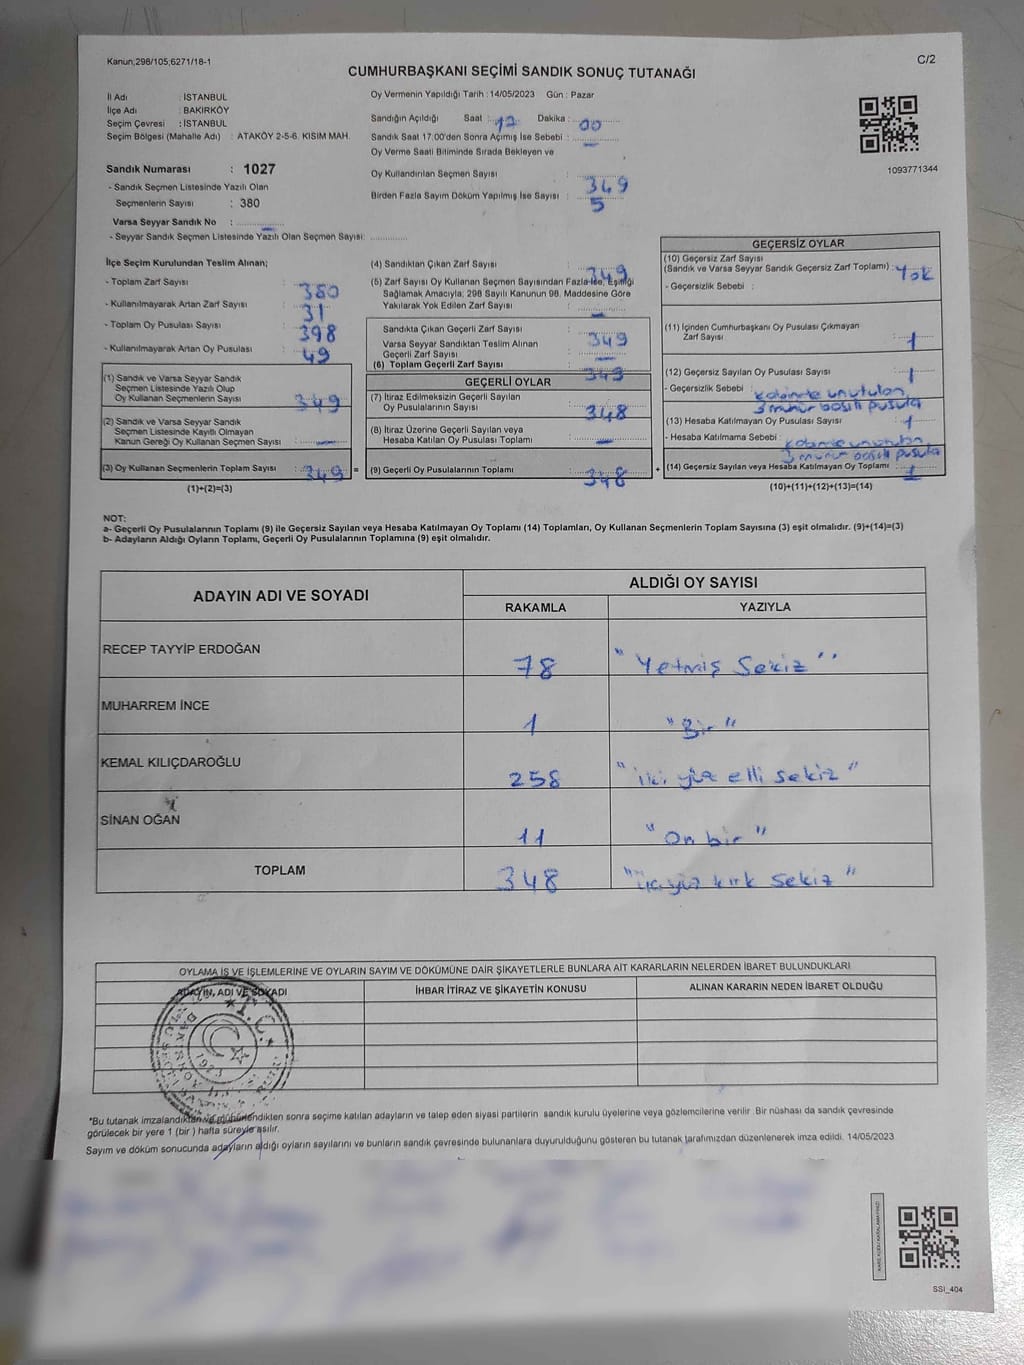 Kanun;298/105;6271/18-1
C/2
CUMHURBAŞKANI SEÇİMİ SANDIK SONUÇ TUTANAĞI
İl Adı : İSTANBUL
İlçe Adı : BAKIRKÖY
Seçim Çevresi : İSTANBUL
Seçim Bölgesi (Mahalle Adı) : ATAKÖY 2-5-6. KISIM MAH.
Sandık Numarası : 1027
- Sandık Seçmen Listesinde Yazılı Olan
Seçmenlerin Sayısı : 380
Varsa Seyyar Sandık No : –
- Seyyar Sandık Seçmen Listesinde Yazılı Olan Seçmen Sayısı:
Oy Vermenin Yapıldığı Tarih : 14/05/2023 Gün : Pazar
Sandığın Açıldığı Saat : 17 Dakika : 00
Sandık Saat 17:00'den Sonra Açımış İse Sebebi : –
Oy Verme Saati Bitiminde Sırada Bekleyen ve
Oy Kullandırılan Seçmen Sayısı : 349
Birden Fazla Sayım Döküm Yapılmış İse Sayısı : 5
1093771344
İlçe Seçim Kurulundan Teslim Alınan;
- Toplam Zarf Sayısı : 380
- Kullanılmayarak Artan Zarf Sayısı : 31
- Toplam Oy Pusulası Sayısı : 398
- Kullanılmayarak Artan Oy Pusulası : 49
(1) Sandık ve Varsa Seyyar Sandık
Seçmen Listesinde Yazılı Olup
Oy Kullanan Seçmenlerin Sayısı : 349
(2) Sandık ve Varsa Seyyar Sandık
Seçmen Listesinde Kayıtlı Olmayan
Kanun Gereği Oy Kullanan Seçmen Sayısı : –
(3) Oy Kullanan Seçmenlerin Toplam Sayısı : 349 =
(1)+(2)=(3)
(4) Sandıktan Çıkan Zarf Sayısı : 349
(5) Zarf Sayısı Oy Kullanan Seçmen Sayısından Fazla İse, Eşitliği
Sağlamak Amacıyla, 298 Sayılı Kanunun 98. Maddesine Göre
Yakılarak Yok Edilen Zarf Sayısı : –
Sandıkta Çıkan Geçerli Zarf Sayısı : 349
Varsa Seyyar Sandıktan Teslim Alınan
Geçerli Zarf Sayısı : –
(6) Toplam Geçerli Zarf Sayısı : 349
GEÇERLİ OYLAR
(7) İtiraz Edilmeksizin Geçerli Sayılan
Oy Pusulalarının Sayısı : 348
(8) İtiraz Üzerine Geçerli Sayılan veya
Hesaba Katılan Oy Pusulası Toplamı : –
(9) Geçerli Oy Pusulalarının Toplamı : 348 +
GEÇERSİZ OYLAR
(10) Geçersiz Zarf Sayısı
(Sandık ve Varsa Seyyar Sandık Geçersiz Zarf Toplamı) : Yok
- Geçersizlik Sebebi :
(11) İçinden Cumhurbaşkanı Oy Pusulası Çıkmayan
Zarf Sayısı : 1
(12) Geçersiz Sayılan Oy Pusulası Sayısı : 1
- Geçersizlik Sebebi : kabinde unutulan
3 mühür basılı pusula
(13) Hesaba Katılmayan Oy Pusulası Sayısı : 1
- Hesaba Katılmama Sebebi : kabinde unutulan,
3 mühür basılı pusula
(14) Geçersiz Sayılan veya Hesaba Katılmayan Oy Toplamı : 1
(10)+(11)+(12)+(13)=(14)
NOT:
a- Geçerli Oy Pusulalarının Toplamı (9) ile Geçersiz Sayılan veya Hesaba Katılmayan Oy Toplamı (14) Toplamları, Oy Kullanan Seçmenlerin Toplam Sayısına (3) eşit olmalıdır. (9)+(14)=(3)
b- Adayların Aldığı Oyların Toplamı, Geçerli Oy Pusulalarının Toplamına (9) eşit olmalıdır.
ADAYIN ADI VE SOYADI
ALDIĞI OY SAYISI
RAKAMLA YAZIYLA
RECEP TAYYİP ERDOĞAN 78 "Yetmiş Sekiz"
MUHARREM İNCE 1 "Bir"
KEMAL KILIÇDAROĞLU 258 "iki yüz elli sekiz"
SİNAN OĞAN 11 "On bir"
TOPLAM 348 "üç yüz kırk sekiz"
OYLAMA İŞ VE İŞLEMLERİNE VE OYLARIN SAYIM VE DÖKÜMÜNE DAİR ŞİKAYETLERLE BUNLARA AİT KARARLARIN NELERDEN İBARET BULUNDUKLARI
ADAYIN, ADI VE SOYADI
İHBAR İTİRAZ VE ŞİKAYETİN KONUSU
ALINAN KARARIN NEDEN İBARET OLDUĞU
T.C.
1923
*Bu tutanak imzalandıktan ve mühürlendikten sonra seçime katılan adayların ve talep eden siyasi partilerin sandık kurulu üyelerine veya gözlemcilerine verilir. Bir nüshası da sandık çevresinde
görülecek bir yere 1 (bir) hafta süreyle asılır.
Sayım ve döküm sonucunda adayların aldığı oyların sayılarını ve bunların sandık çevresinde bulunanlara duyurulduğunu gösteren bu tutanak tarafımızdan düzenlenerek imza edildi. 14/05/2023
SSI_404